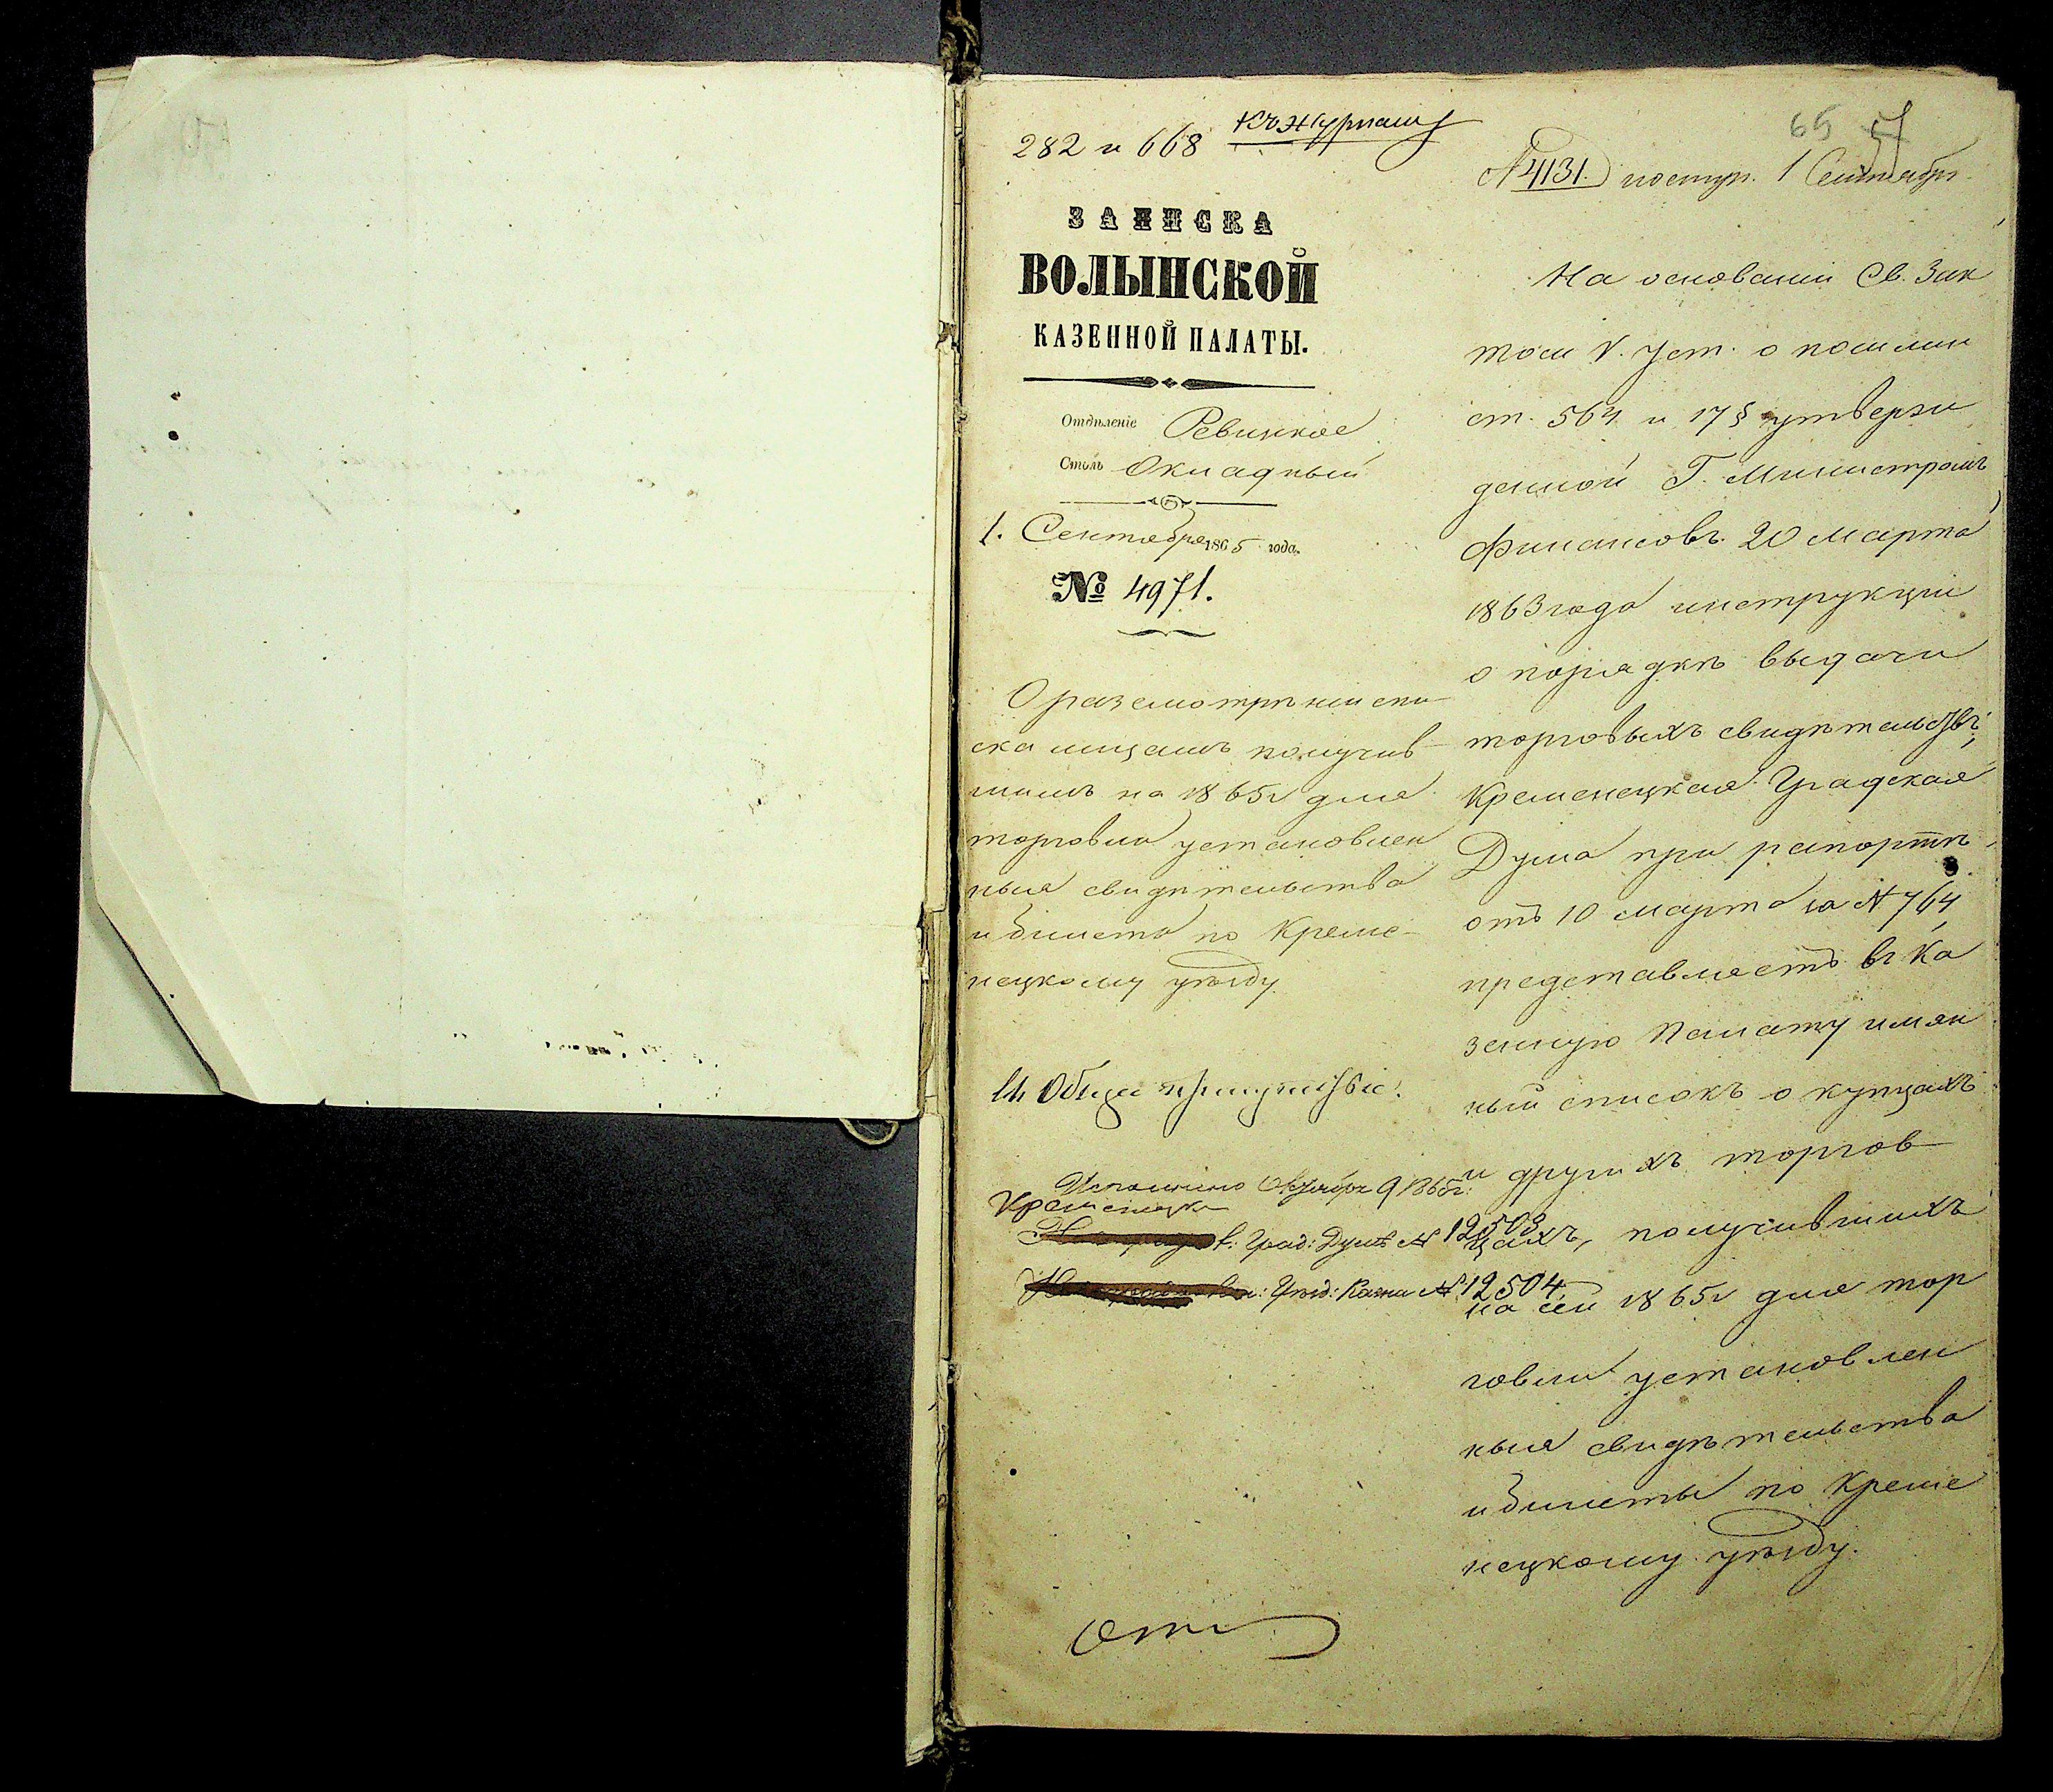 282 и 668
Къ журналу
65
№ 4131. поступ. 1 Сентября
ЗАПИСКА
ВОЛЫНСКОЙ
КАЗЕННОЙ ПАЛАТЫ.
Отдѣленіе Ревизское
Столъ Окладный
1. Сентября 1865 года.
№ 4971.
О разсмотрѣніи спи-
ска лицамъ получив-
шимъ на 1865 г для
торговли установлен
ныя свидѣтельства
и билеты по Креме-
нецкому уѣзду
Исполнено Октября 9 1865 г.
Кременецк
Град: Думѣ № 12503
Уѣзд: Казна № 12504
На основаніи Св. Зак
том V. уст. о пошлин
ст. 564 и 17 § утверж
денной Г. Министромъ
Финансовъ 20 марта
1863 года инструкціи
о порядкѣ выдачи
торговыхъ свидѣтельствъ,
Кременецкая Градская
Дума при рапортѣ,
отъ 10 марта за № 764,
представляетъ въ Ка
зенную Палату имян
ный списокъ о купцахъ
и другихъ торгов-
цахъ, получившихъ
на сей 1865 г для тор
говли установлен
ныя свидѣтельства
и билеты по Креме
нецкому уѣзду.